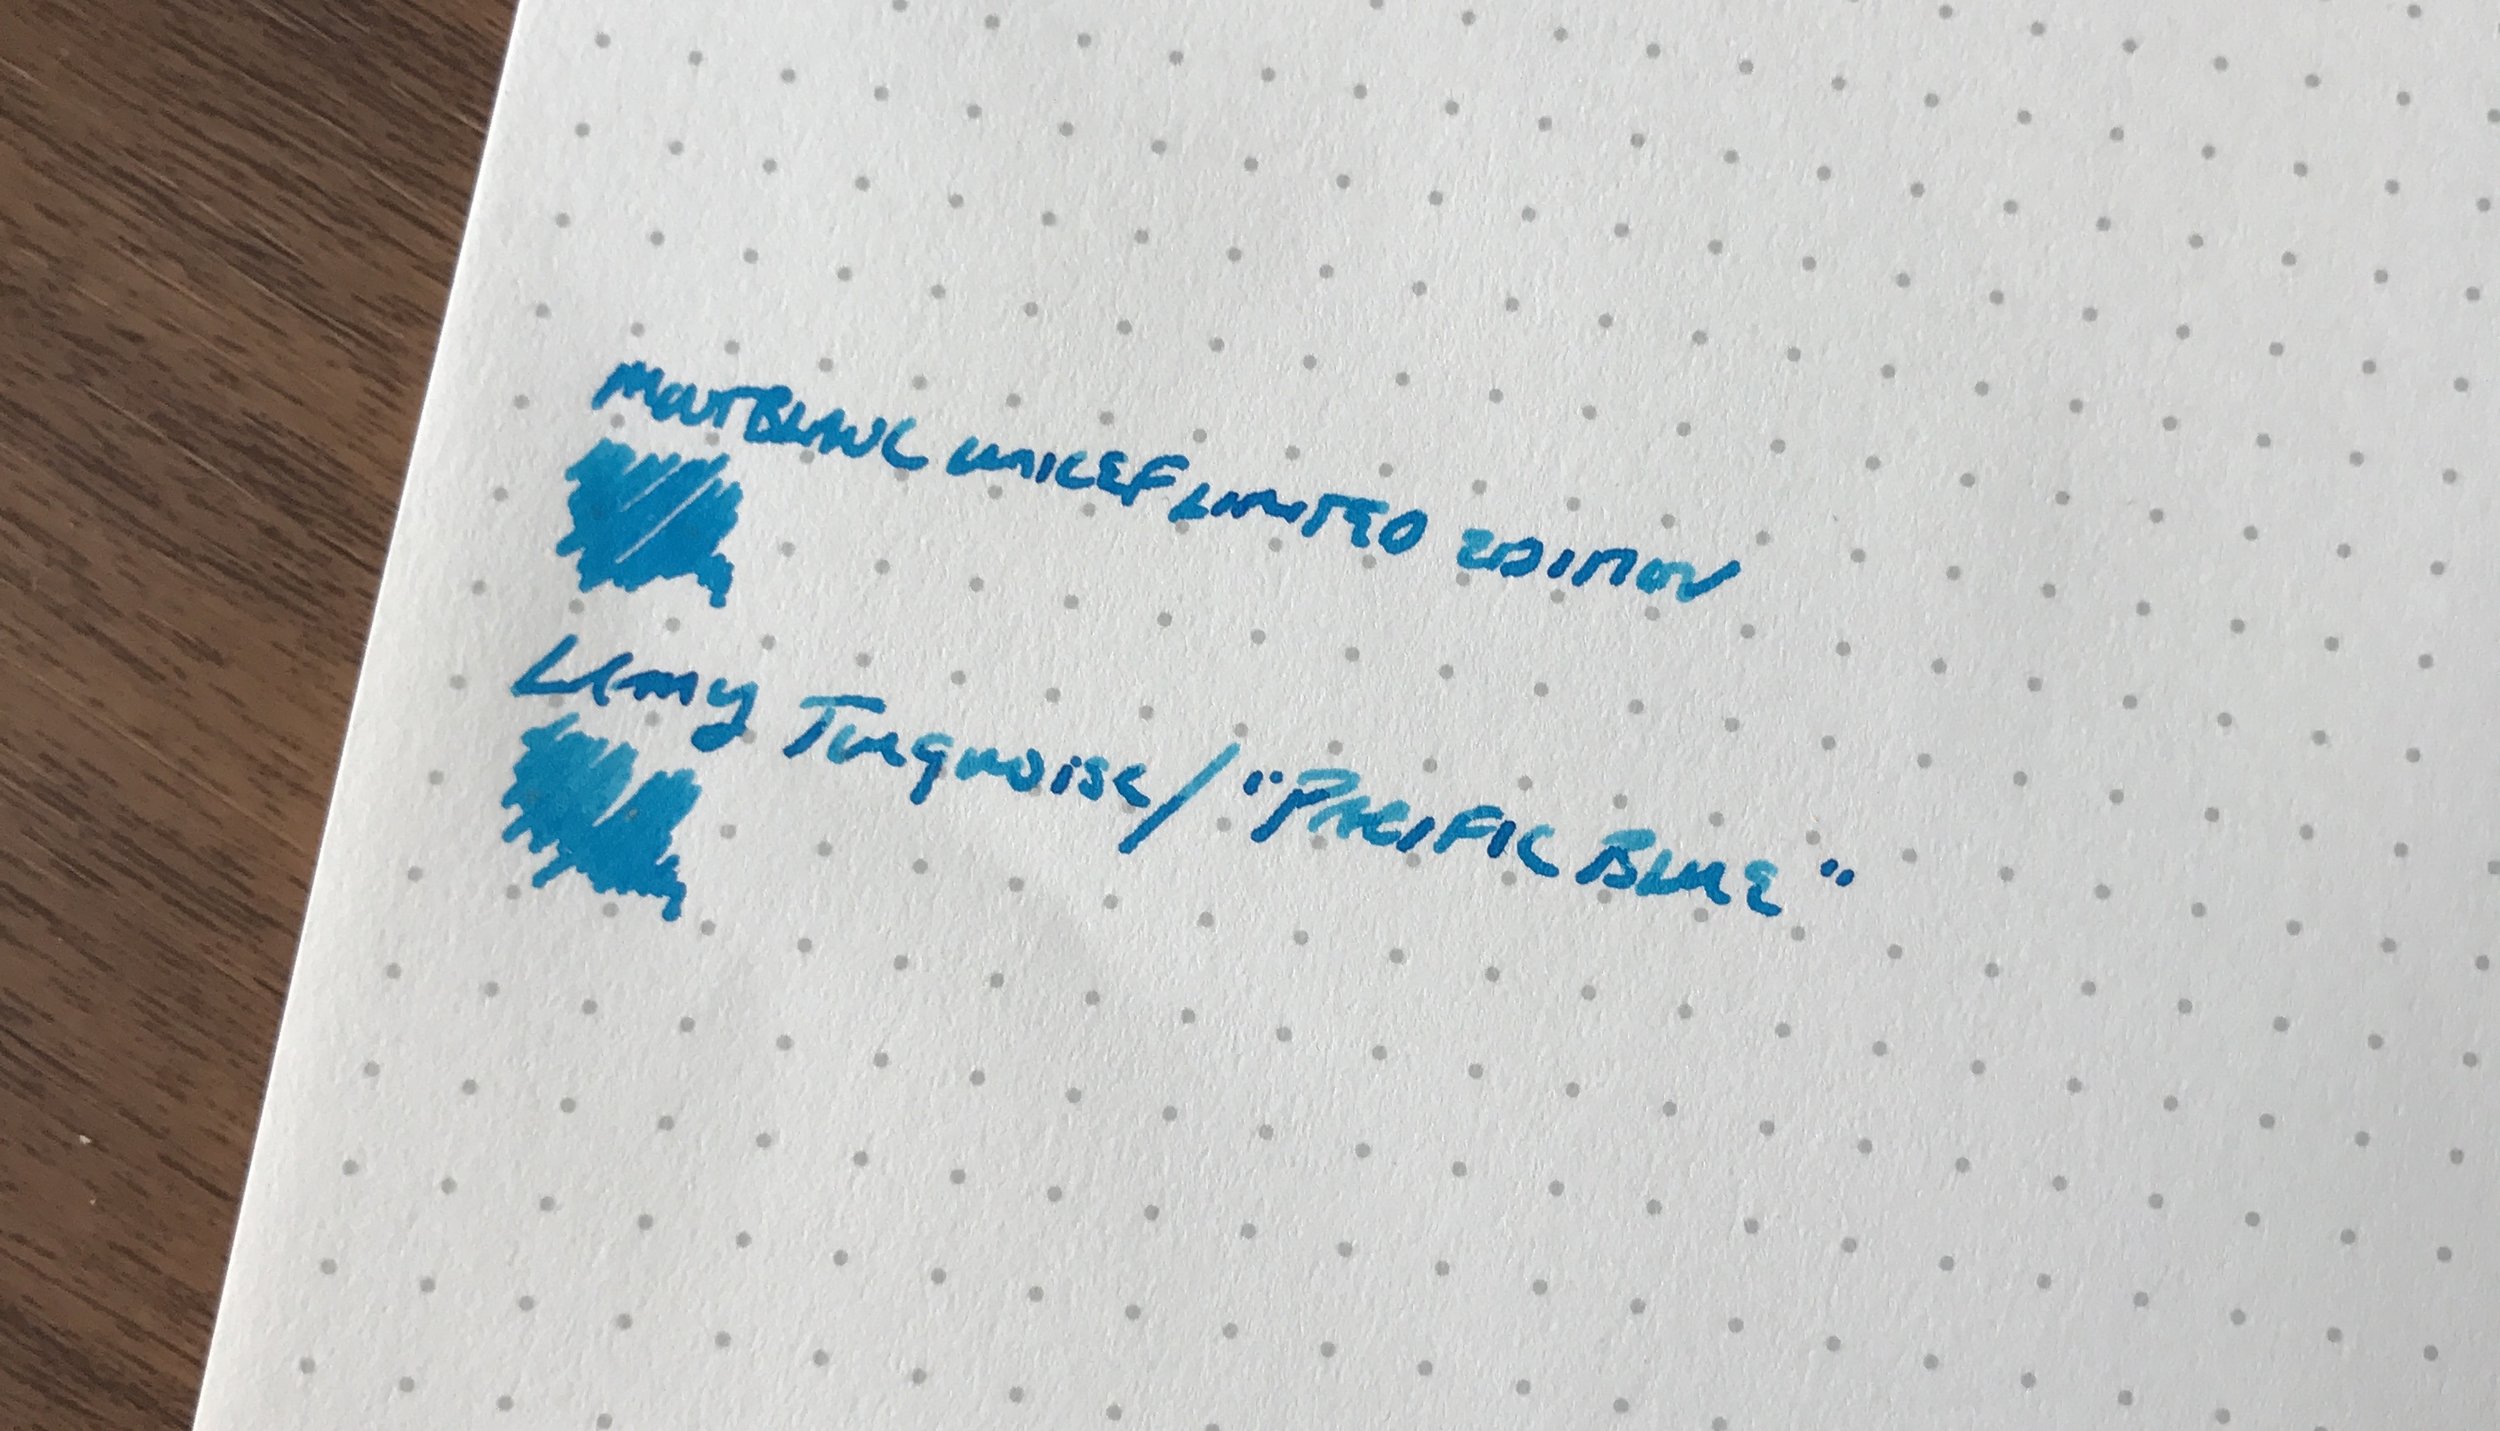 MONTBLANC UNICEF LIMITED EDITION
Lamy Turquoise/"PACIFIC BLUE"